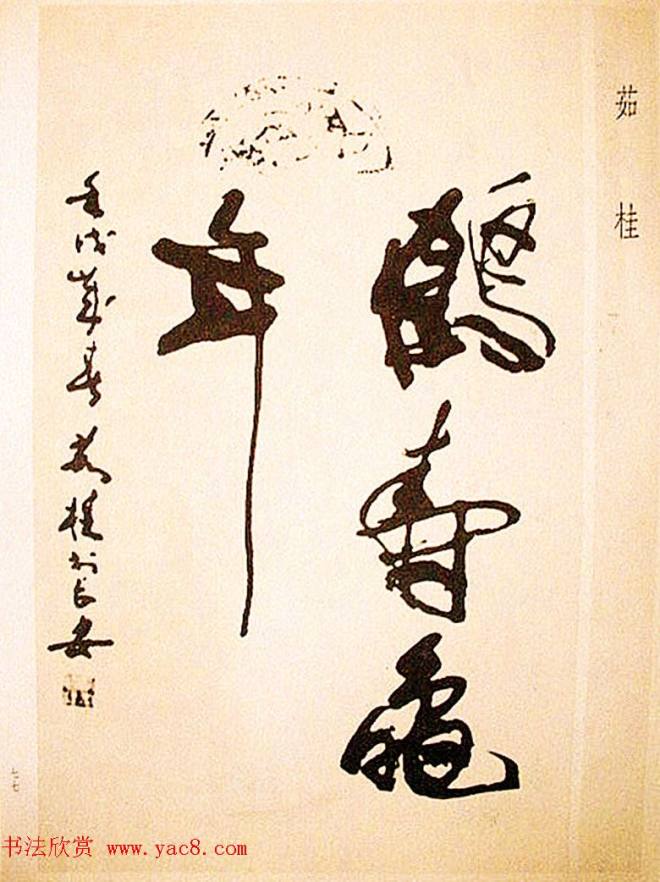 茹桂
鹤寿龟
年
壬戌岁春茹桂书长安
七七
书法欣赏 www.yac8.com